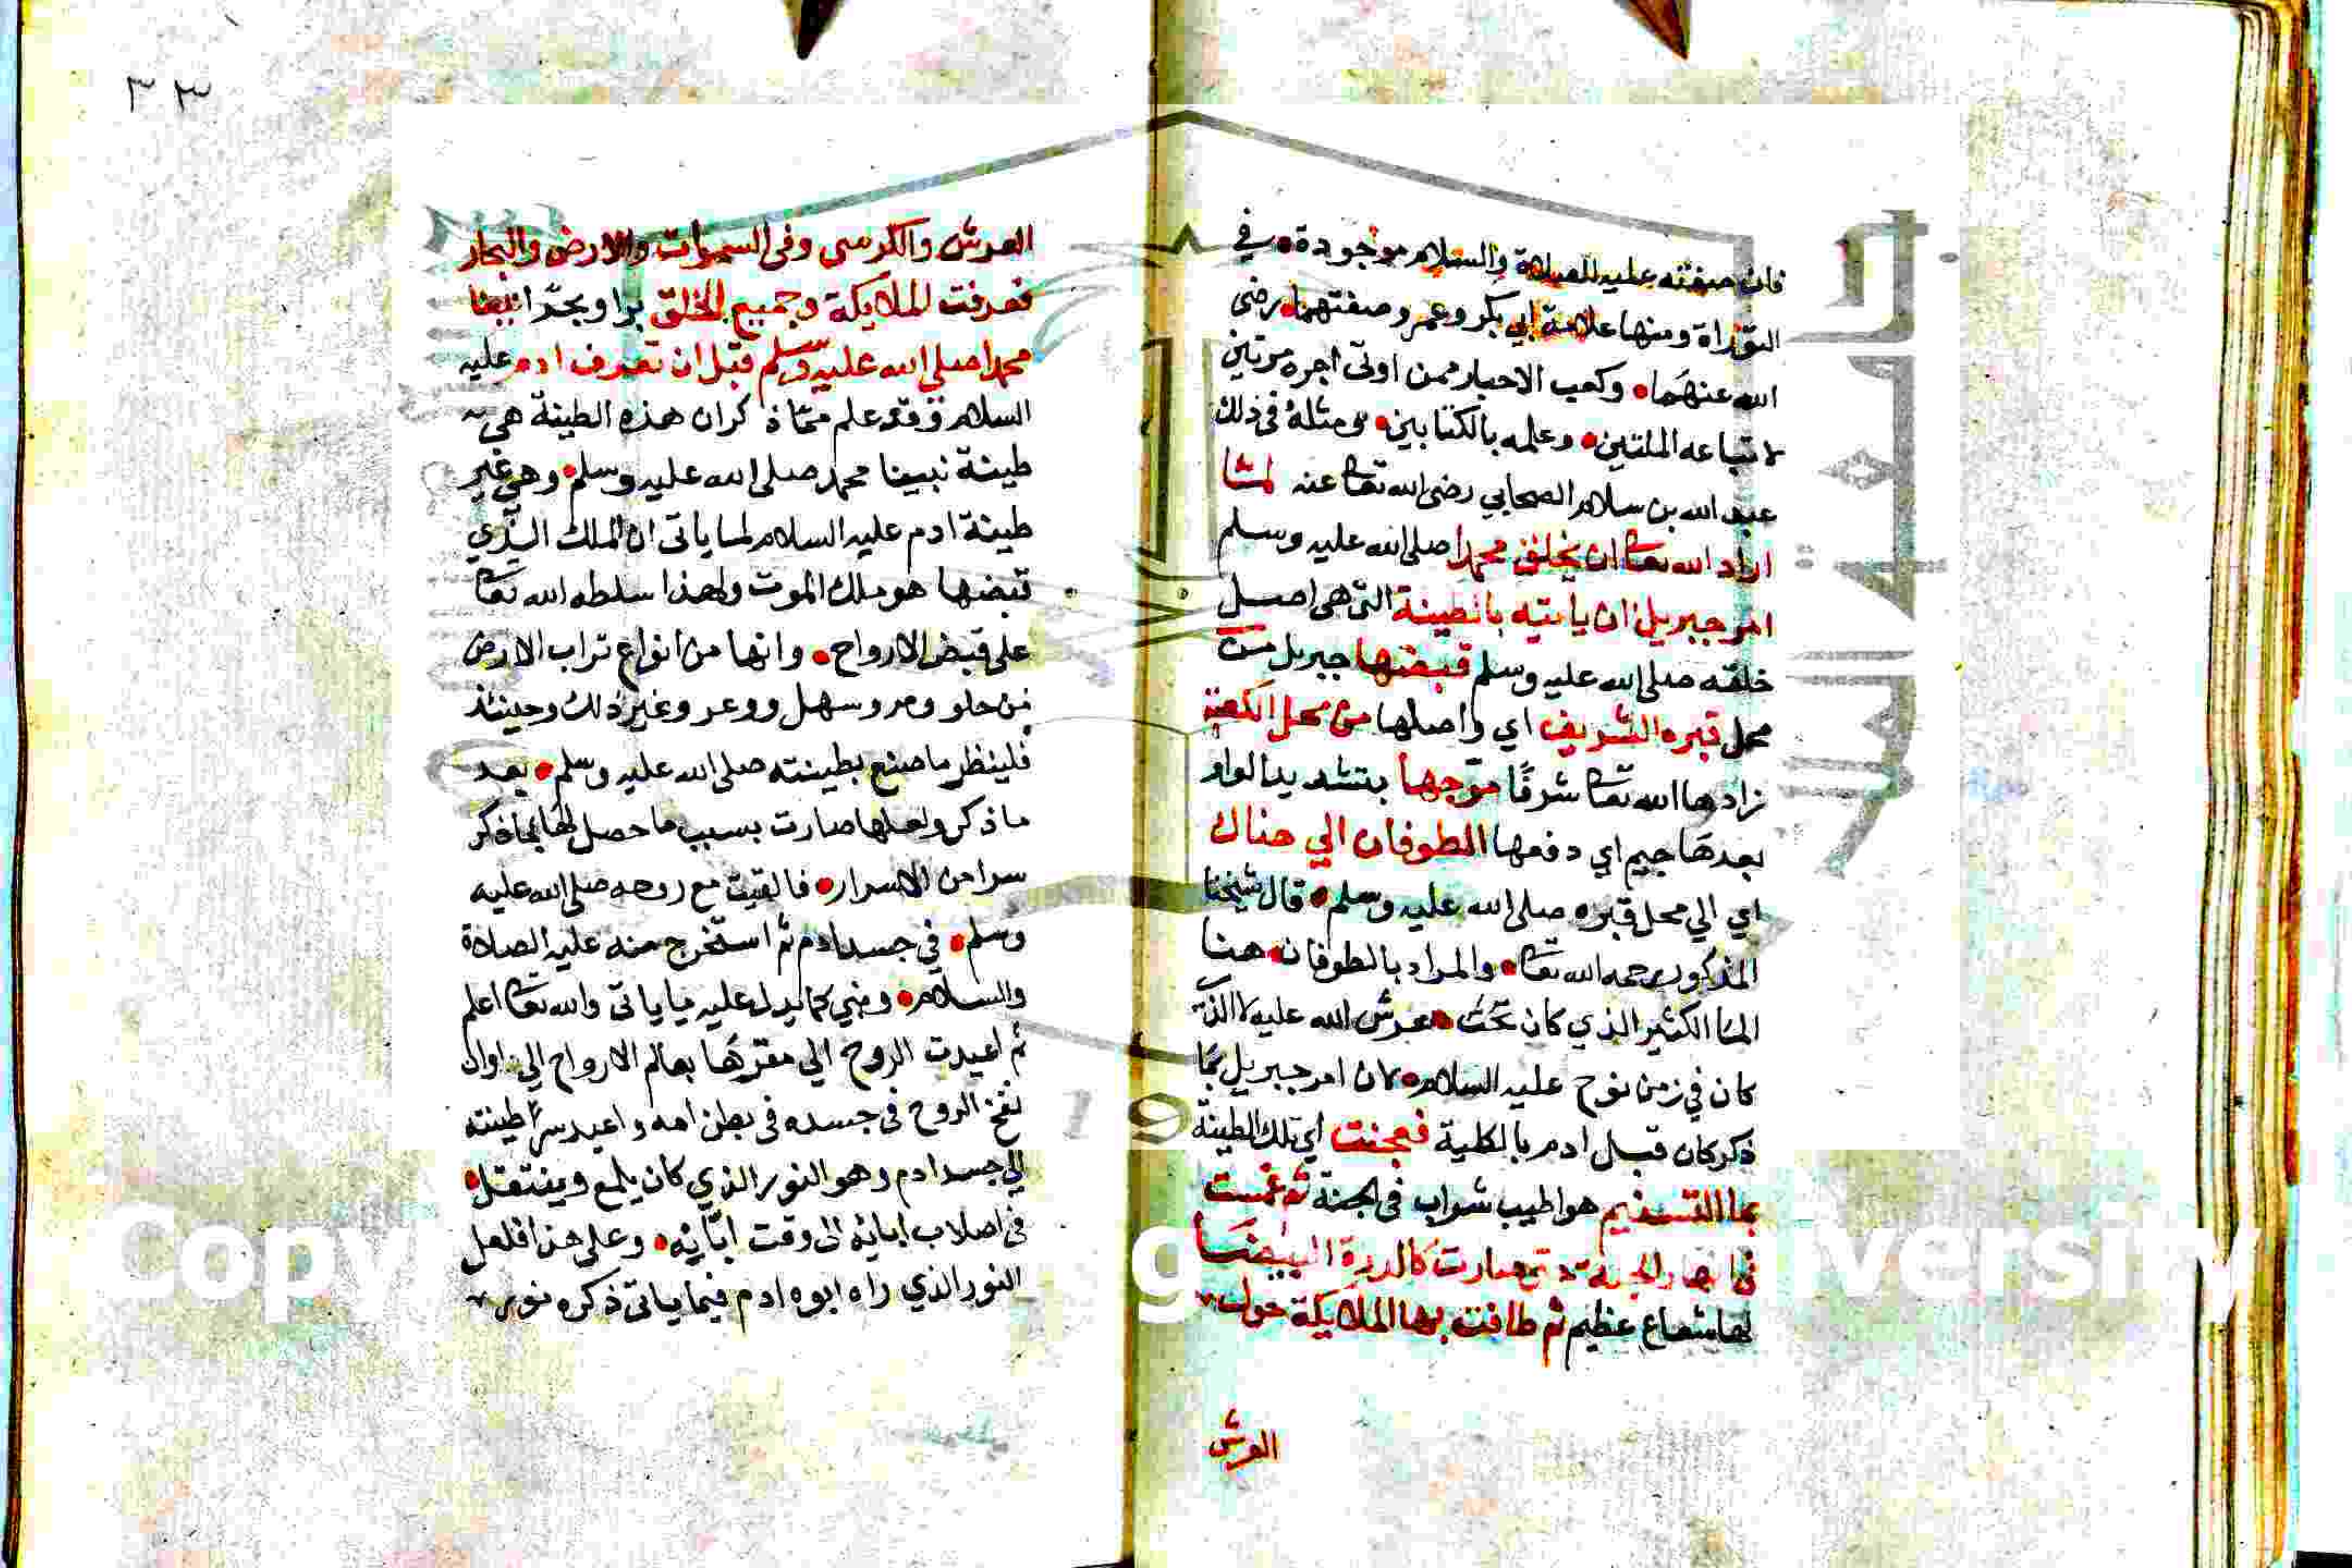 فان صفته عليه الصلاة والسلام موجودة في
التوراة ومنها علامة ابي بكر وعمر وصفتهما رضى
الله عنهما وكعب الاحبار ممن اوتى اجره مرتين
لاتباعه الملتين وعلمه بالكتابين ومثله فى ذلك
عبد الله بن سلام الصحابي رضى الله تعا عنه لما
اراد الله تعا ان يخلق محمدا صلى الله عليه وسلم
امر جبريل ان ياتيه بالطينة التى هى اصل
خلقه صلى الله عليه وسلم قبضها جبريل من
محل قبره الشريف اي واصلها من محل الكعبة
زادها الله تعا شرفا موجها بتشديد الواو
بعدها جيم اي دفعها الطوفان الي هناك
اي الي محل قبره صلى الله عليه وسلم قال شيخنا
المذكور رحمه الله تعا والمراد بالطوفان هنا
الما الكثير الذي كان تحت عرش الله عليه لا الذي
كان في زمن نوح عليه السلام لان امر جبريل بما
ذكر كان قبل ادم بالكلية فعجنت اي تلك الطينة
بما التسنيم هو اطيب شراب فى الجنة ثم غمست
فى انهار الجنة صارت كالدرة البيضا
لها شعاع عظيم ثم طافت بها الملايكة حول
العرش
٣٣
العرش والكرسى وفى السموات والارض والبحار
فعرفت الملايكة وجميع الخلق برا وبحرا نبينا
محمدا صلى الله عليه وسلم قبل ان تعرف ادم عليه
السلام وقد علم مما ذكر ان هذه الطينة هى
طينة نبينا محمد صلى الله عليه وسلم وهى غير
طينة ادم عليه السلام لما ياتى ان الملك الذي
قبضها هو ملك الموت ولهذا سلطه الله تعا
على قبض الارواح وانها من انواع تراب الارض
من حلو ومر وسهل ووعر وغير ذلك وحينئذ
فلينظر ما صنع بطينته صلى الله عليه وسلم بعد
ما ذكر ولعلها صارت بسبب ما حصل لها بما ذكر
سرا من الاسرار فالقيت مع روحه صلى الله عليه
وسلم في جسد ادم ثم استخرج منه عليه الصلاة
والسلام ونبي كما يدل عليه ما ياتى والله تعا اعلم
ثم اعيدت الروح الي مقرها بعالم الارواح الي اوان
نفخ الروح فى جسده فى بطن امه واعيد سر طينته
الي جسد ادم وهو النور الذي كان يلمع وينتقل
فى اصلاب ابائه الى وقت ابانه وعلى هذا فلعل
النور الذي راه ابوه ادم فيما ياتى ذكره نور